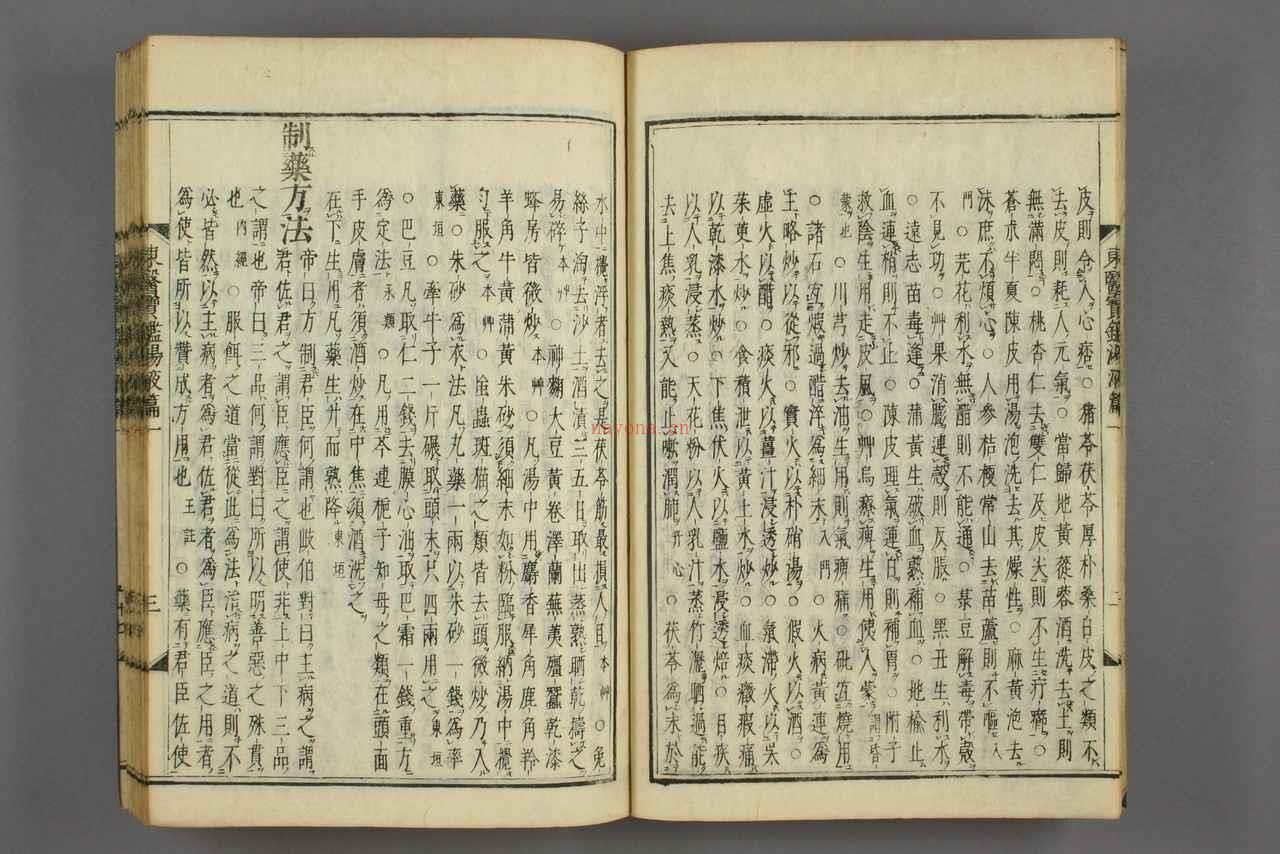 皮則令人心痞○猪苓茯苓厚朴桑白皮之類不
去皮則耗人元氣○當歸地黃蓯蓉酒洗去土則
無滿悶○桃杏仁去雙仁及皮尖則不生疔癤○
蒼朮半夏陳皮用湯泡洗去其燥性○麻黃泡去
沫庶不煩心○人參桔梗常山去苗蘆則不嘔入
門○芫花利水無醋則不能通○菉豆解毒帶殼
不見功○艸果消膨連殼則反脹○黑丑生利水
○遠志苗毒逢○蒲黃生破血熟補血○地楡止
血連梢則不止○陳皮理氣連白則補胃○附子
救陰生用走皮風○艸烏療痺生用使人蒙謂昏
蒙也○川芎炒去油生用則氣痺痛○砒宜燒用
○諸石宜煆過醋淬爲細末入門○火病黃連爲
主略炒以從邪○實火以朴硝湯○假火以酒○
虛火以醋○痰火以薑汁浸透炒○氣滯火以吳
茱萸水炒○食積泄以黃土水炒○血痰癥瘕痛
以乾漆水炒○下焦伏火以鹽水浸透焙○目疾
以人乳浸蒸○天花粉以人乳汁蒸竹瀝晒過能
去上焦痰熱又能止嗽潤肺丹心○茯苓爲末於
東醫寶鑑湯液篇一
水中攪浮者去之是茯苓筋最損人目本艸○兔
絲子淘去沙土酒漬三五日取出蒸熟晒乾擣之
易碎本艸○神麴大豆黃卷澤蘭蕪荑殭蠶乾漆
蜂房皆微炒本艸○凡湯中用麝香犀角鹿角羚
羊角牛黃蒲黃朱砂須細末如粉臨服納湯中攪
勻服之本艸○䖟蟲斑猫之類皆去頭微炒乃入
藥○朱砂爲衣法凡丸藥一兩以朱砂一錢爲率
東垣○牽牛子一斤碾取頭末只四兩用之東垣
○巴豆凡取仁二錢去膜心油取巴霜一錢重方
爲定法永類○凡用芩連梔子知母之類在頭面
手皮膚者須酒炒在中焦須酒洗之
在下生用凡藥生升而熟降東垣
制藥方法
帝曰方制君臣何謂也岐伯對曰主病之謂
君佐君之謂臣應臣之謂使非上中下三品
之謂也帝曰三品何謂對曰所以明善惡之殊貫
也內經○服餌之道當從此爲法治病之道則不
必皆然以主病者爲君佐君者爲臣應臣之用者
爲使皆所以贊成方用也王註○藥有君臣佐使
東醫寶鑑湯液篇一
三
nayona.cn